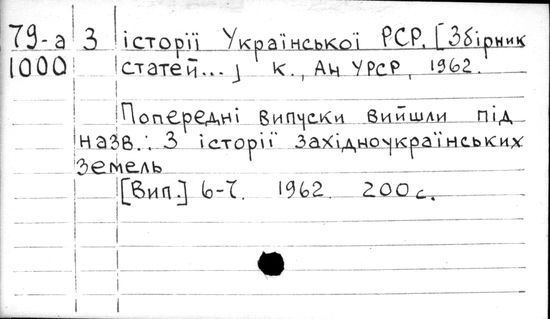 79-а З історії Української РСР. [Збірник
1000 статей...] К., Ан УРСР, 1962.
Попередні випуски вийшли під
назв.: З історії західноукраїнських
земель
[Вип.] 6-7. 1962. 200 с.